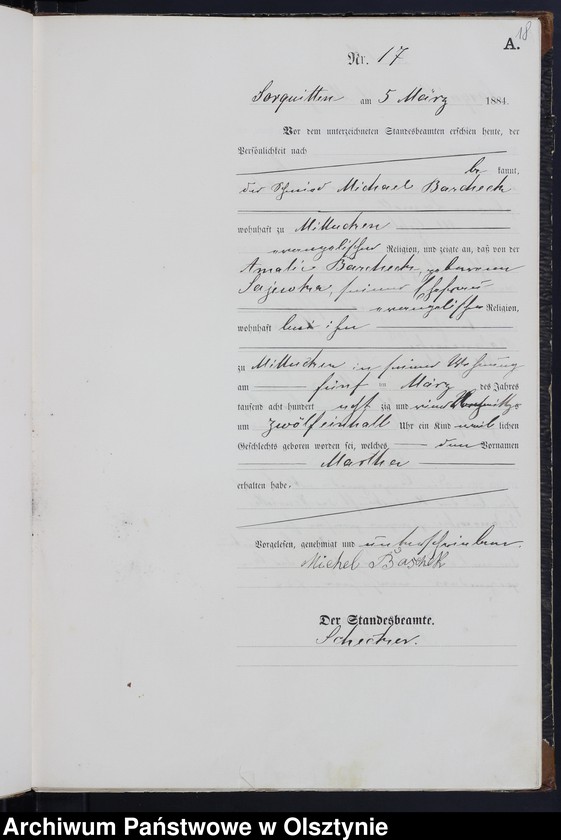 18
A.
Nr. 17
Sorquitten am 5 März 1884
Vor dem unterzeichneten Standesbeamten erschien heute, der
Persönlichkeit nach
be kannt,
der Schmied Michael Bascheck
wohnhaft zu
evangelischer Religion, und zeigte an, daß von der
Amalie Bascheck, geborenen
seiner Ehefrau
evangelischer Religion,
wohnhaft bei ihm
zu in seiner Wohnung
am fünf ten März des Jahres
tausend acht hundert acht zig und vier Vormittags
um zwölfeinhalb Uhr ein Kind weib lichen
Geschlechts geboren worden sei, welches den Vornamen
Martha
erhalten habe.
Vorgelesen, genehmigt und unterschrieben.
Michel
Der Standesbeamte.
Archiwum Państwowe w Olsztynie